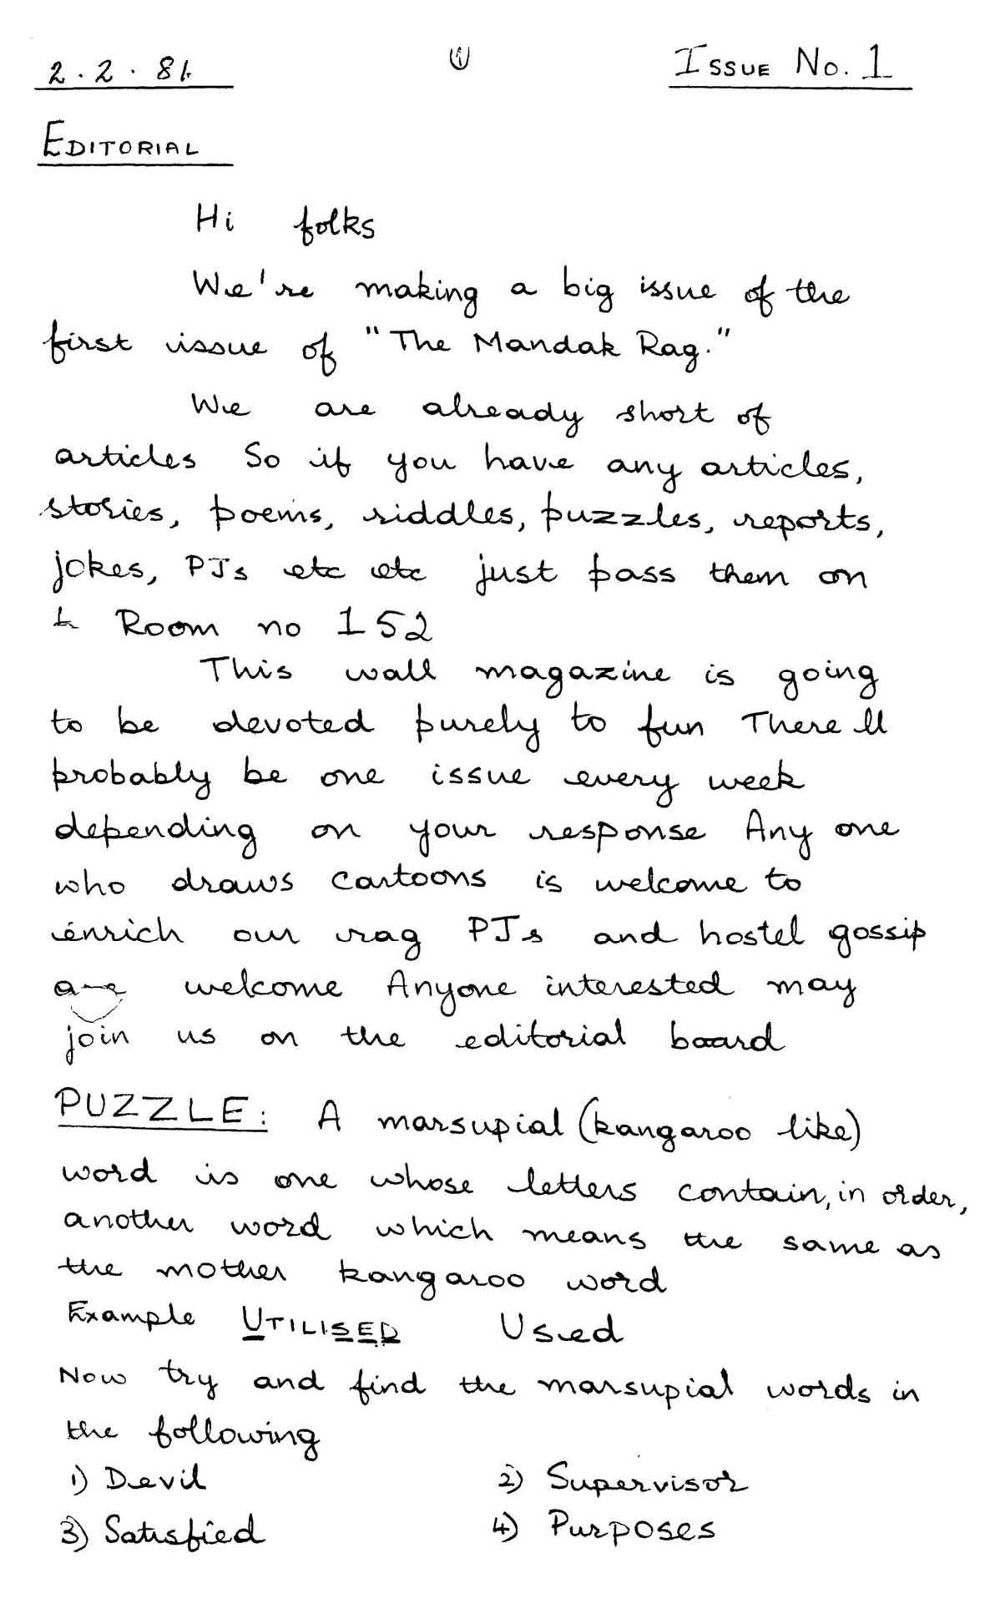 2.2.81.
①
Issue No. 1
Editorial
Hi folks
We're making a big issue of the
first issue of "The Mandak Rag."
We are already short of
articles So if you have any articles,
stories, poems, riddles, puzzles, reports,
jokes, PJs etc etc just pass them on
to Room no 152
This wall magazine is going
to be devoted purely to fun There ll
probably be one issue every week
depending on your response Any one
who draws cartoons is welcome to
enrich our rag PJs and hostel gossip
are welcome Anyone interested may
join us on the editorial board
PUZZLE: A marsupial (kangaroo like)
word is one whose letters contain, in order,
another word which means the same as
the mother kangaroo word
Example UTILISED Used
Now try and find the marsupial words in
the following
1) Devil 2) Supervisor
3) Satisfied 4) Purposes